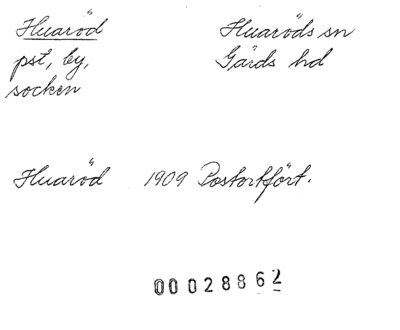 Huaröd
Huaröds sn
pst, by,
Gärds hd
socken
Huaröd 1909 Postortfört.
00028862